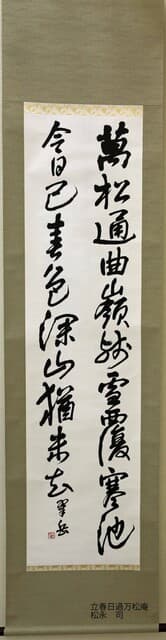 萬松通曲嶺残雪覆寒池
今日已春色深山猶未知 翠岳
立春日過万松庵
松永 司